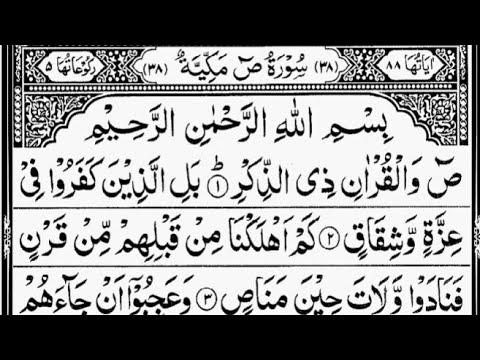 اٰیَاتُهَا ٨٨ (٣٨) سُوْرَةُ صٓ مَكِّيَّةٌ (٣٨) رُكُوْعَاتُهَا ٥
بِسْمِ اللهِ الرَّحْمٰنِ الرَّحِيْمِ
صٓ وَالْقُرْاٰنِ ذِی الذِّكْرِ ؕ ١ بَلِ الَّذِيْنَ كَفَرُوْا فِیْ
عِزَّةٍ وَّشِقَاقٍ ٢ كَمْ اَهْلَكْنَا مِنْ قَبْلِهِمْ مِّنْ قَرْنٍ
فَنَادَوْا وَّلَاتَ حِيْنَ مَنَاصٍ ٣ وَعَجِبُوْۤا اَنْ جَآءَهُمْ